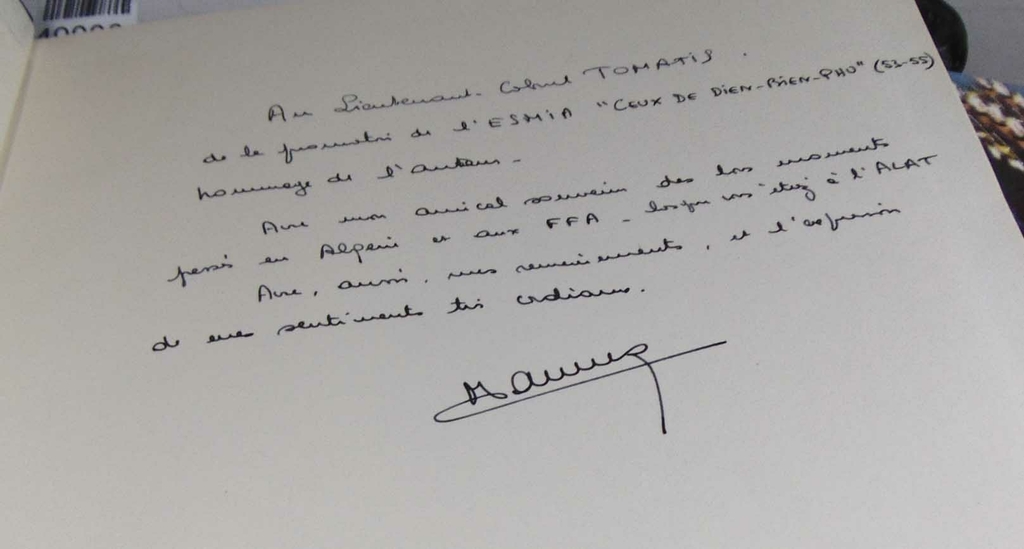 Au Lieutenant-Colonel TOMATIS.
de la promotion de l'ESMIA "CEUX DE DIEN-BIEN-PHU" (53-55)
hommage de l'auteur -
Avec mon amical souvenir des bons moments
passés en Algérie et aux FFA - lorsque vous étiez à l'ALAT
Avec, aussi, mes remerciements, et l'expression
de mes sentiments très cordiaux.